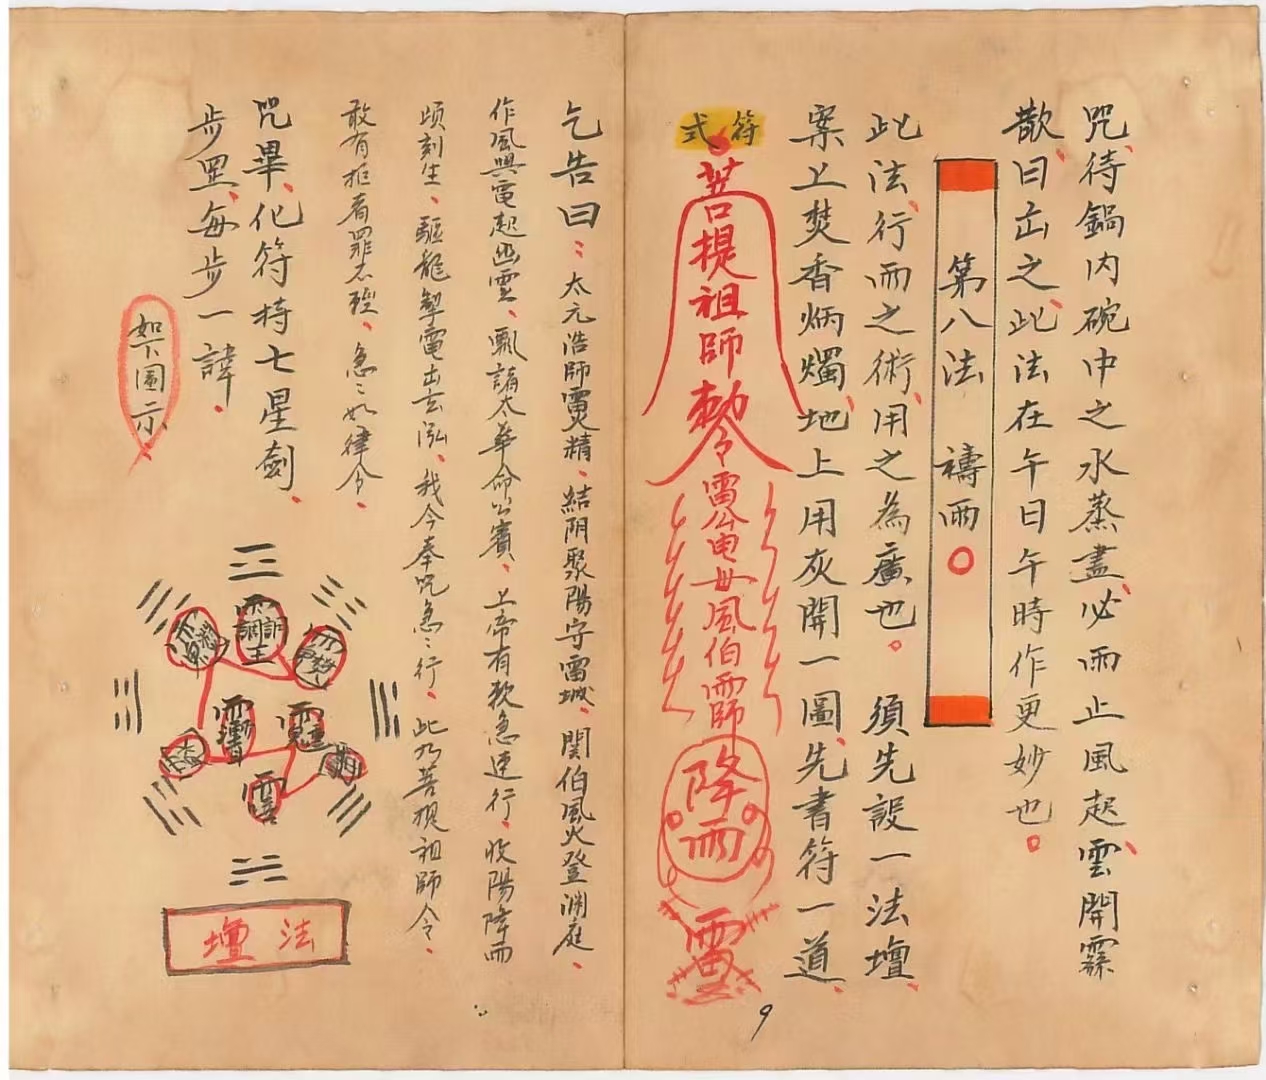 咒、待鍋内碗中之水蒸盡、必雨止風起、雲開霧
散、日出之、此法在午日午時作更妙也。
第八法 禱雨
此法、行而之術、用之為廣也。須先設一法壇、
案上焚香炳燭、地上用灰開一圖、先書符一道、
符式
菩提祖師敕令雷公電母風伯雨師
降雨
雷
乞告曰：太元浩師雷火精、結阴聚陽守雷城、関伯風火登渊庭、
作風興電起幽靈、飄諸太華命公賓、上帝有敕急速行、收陽降雨
頃刻生、驅龍掣電出玄泓、我今奉咒急々行、此乃菩提祖師令、
敢有拒者罪不輕、急々如律令、
咒畢、化符持七星劍、
步罡、每步一諱、
如下圖示
法壇
9